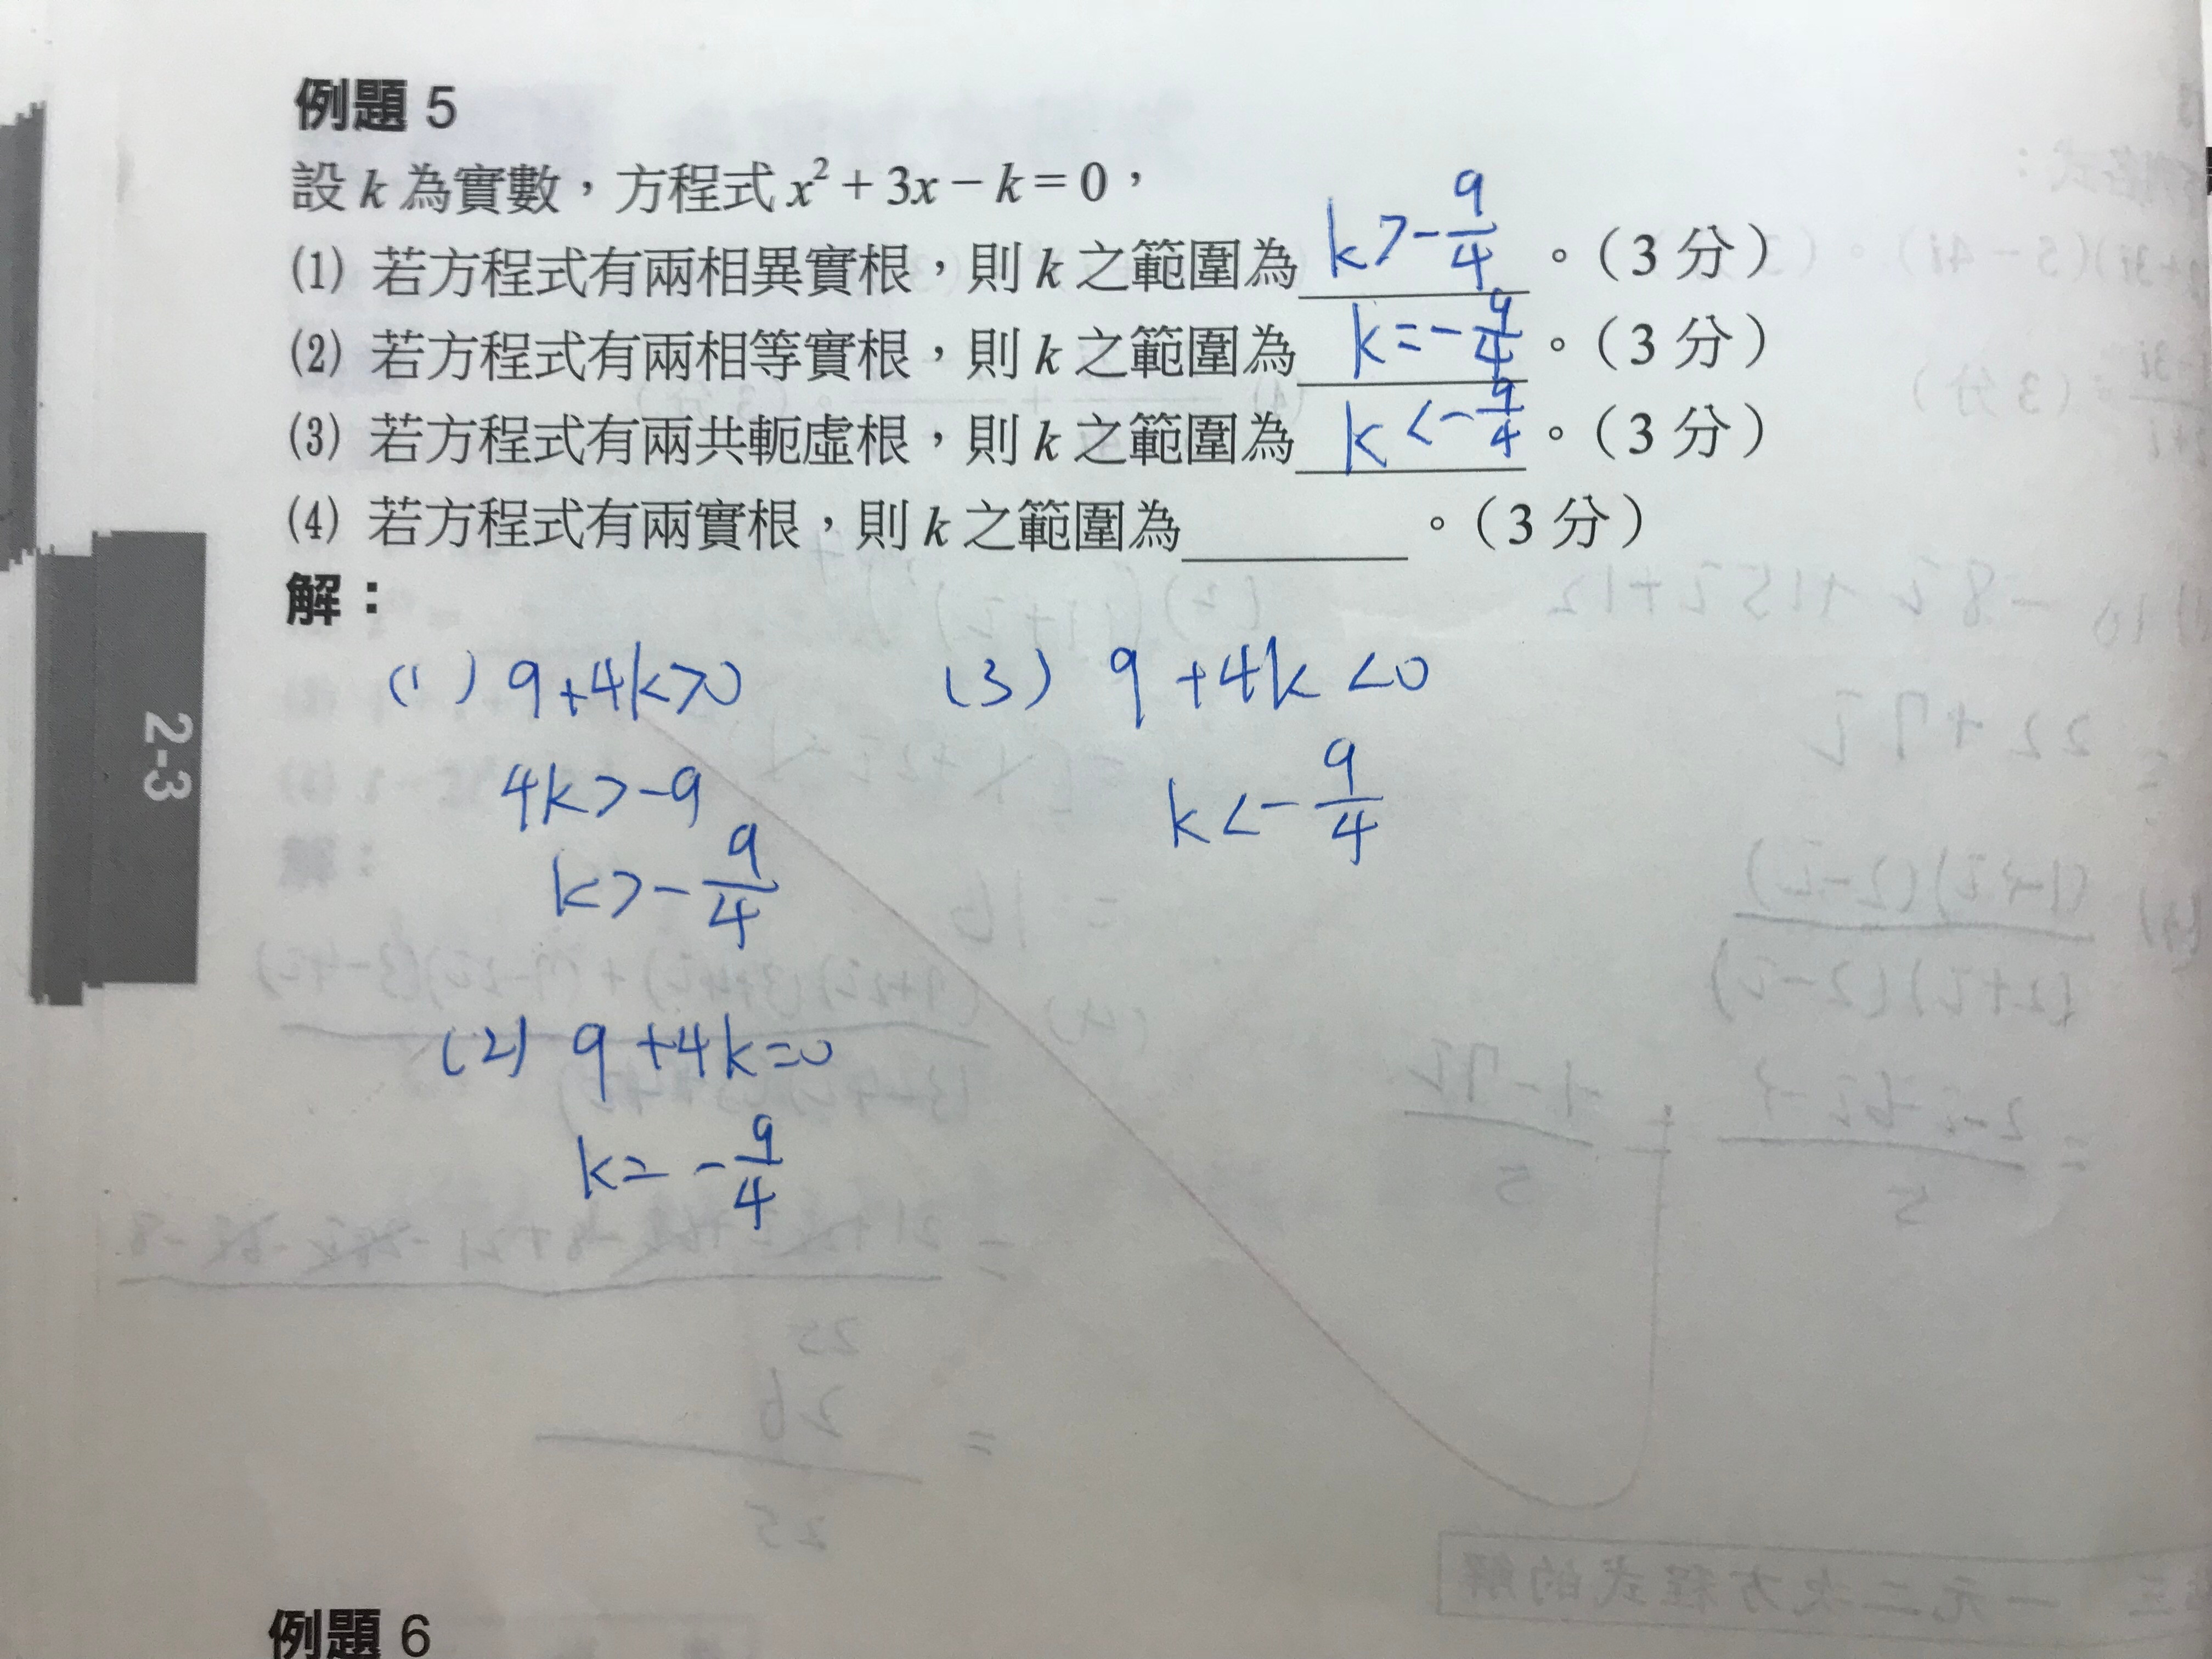 例題 5
設 k 為實數，方程式 x² + 3x − k = 0，
(1) 若方程式有兩相異實根，則 k 之範圍為 k > −9/4 。（3 分）
(2) 若方程式有兩相等實根，則 k 之範圍為 k = −9/4 。（3 分）
(3) 若方程式有兩共軛虛根，則 k 之範圍為 k < −9/4 。（3 分）
(4) 若方程式有兩實根，則 k 之範圍為________。（3 分）
解：
(1) 9+4k>0
4k>-9
k>-9/4
(2) 9+4k=0
k=-9/4
(3) 9+4k<0
k<-9/4
2-3
例題 6